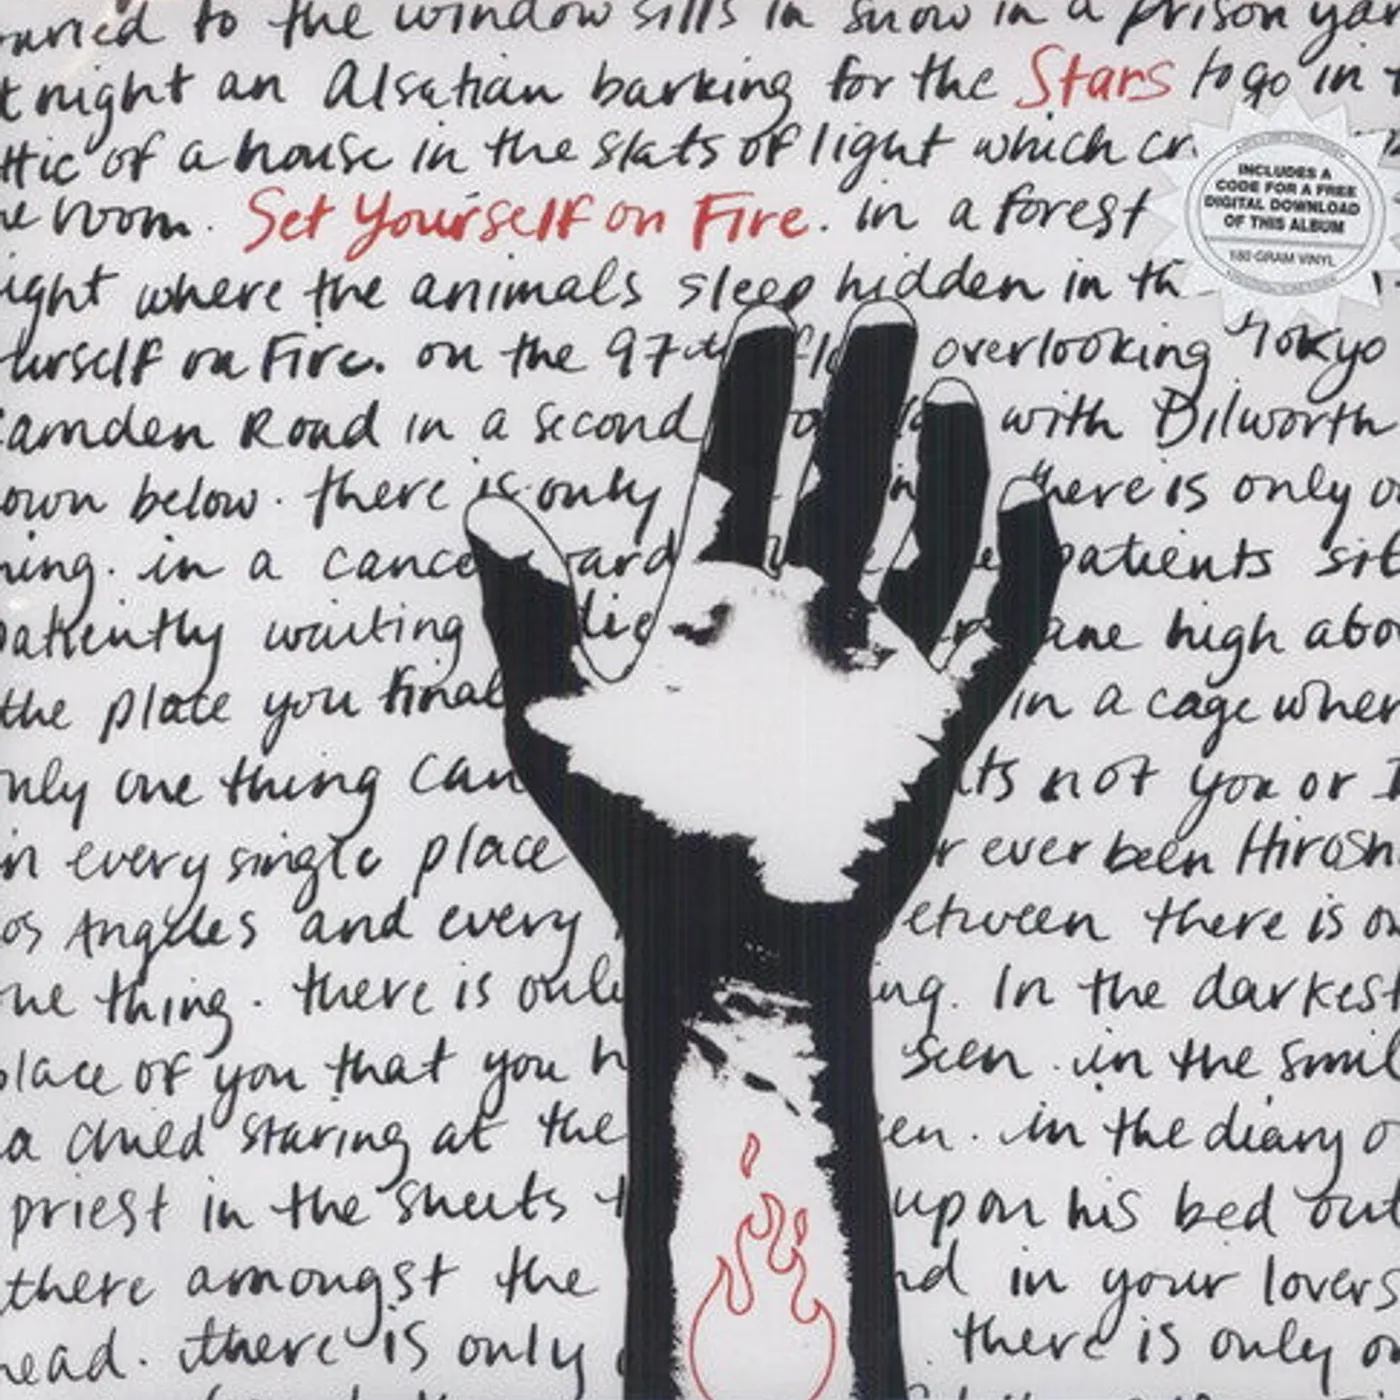 to the window sills in snow in a prison yar
t night an Alsatian barking for the Stars to go in t
ttic of a house in the slats of light which cr
he room. Set Yourself on Fire. in a forest
ight where the animals sleep hidden in th
urself on Fire. on the 97th fl overlooking Tokyo
Camden Road in a second with Dilworth
own below. there is only there is only o
hing. in a cance ward patients sit
patiently waiting die ane high abo
the place you final in a cage wher
only one thing can its not you or I
in every single place r ever been Hirosh
os Angeles and every etween there is on
one thing. there is only ing. In the darkest
place of you that you h seen. in the smil
a child staring at the en. in the diary o
priest in the sheets t upon his bed out
there amongst the nd in your lovers
head. there is only . there is only on
INCLUDES A
CODE FOR A FREE
DIGITAL DOWNLOAD
OF THIS ALBUM
180 GRAM VINYL